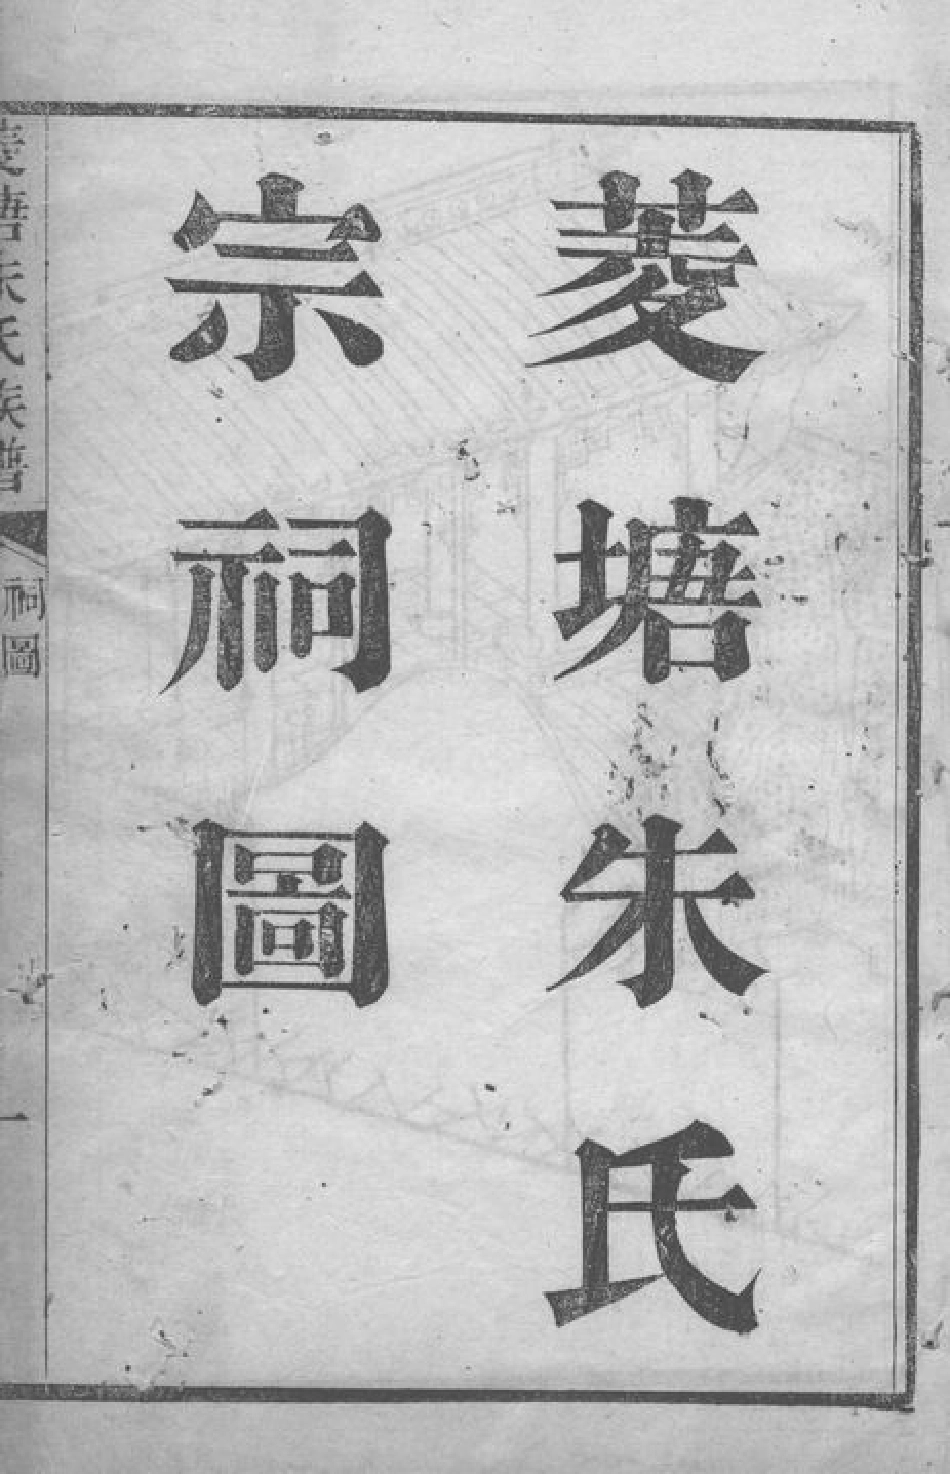 菱塘朱氏
宗祠圖
菱塘朱氏族譜
祠圖
一